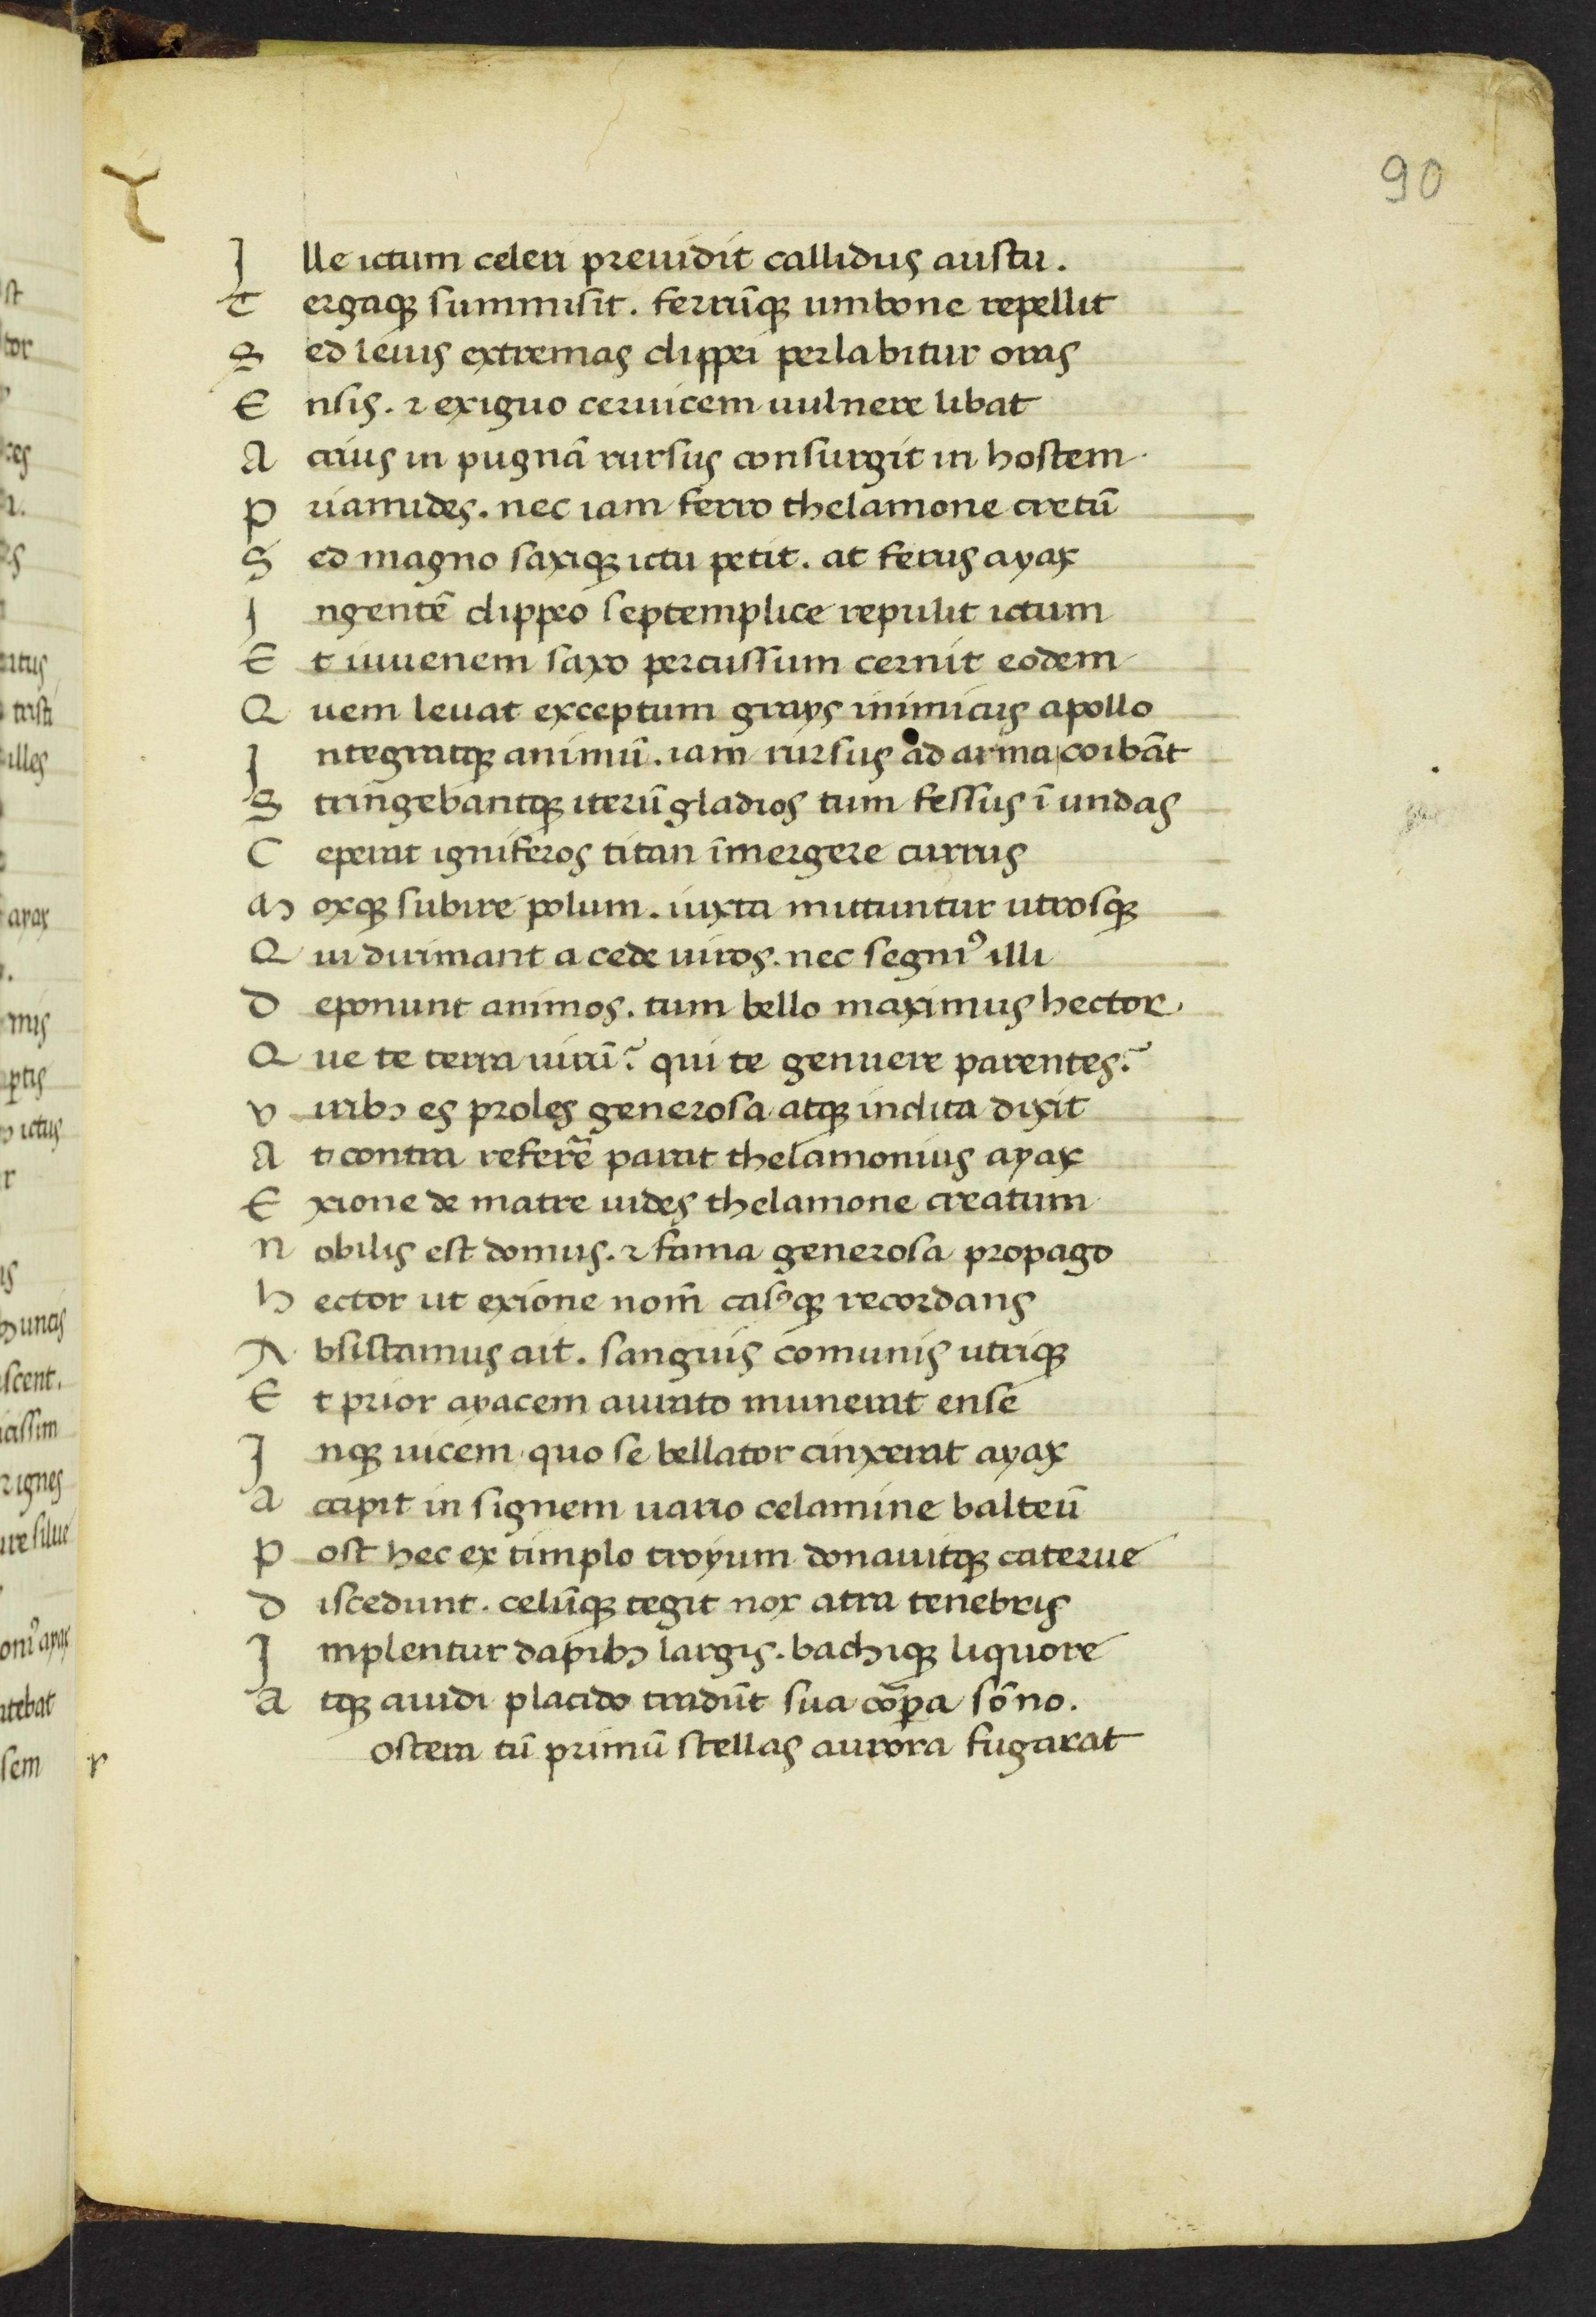 90
Ille ictum celeri preuidit callidus austu.
Tergaqꝫ summisit. ferrūqꝫ umbone repellit
Sed leuis extremas clippei perlabitur oras
Ensis. ⁊ exiguo ceruicem uulnere libat
Acrius in pugnā rursus consurgit in hostem
Priamides. nec iam ferro thelamone cretū
Sed magno saxiqꝫ ictu petit. at ferus ayax
Ingentē clippeo septemplice repulit ictum
Et iuuenem saxo percussum cernit eodem
Quem leuat exceptum grays inimicus apollo
Integratqꝫ animū. iam rursus ad arma coibāt
Stringebantqꝫ iterū gladios tum fessus ī undas
Ceperat igniferos titan īmergere currus
Moxqꝫ subire polum. iuxta mittuntur utrosqꝫ
Qui dirimant a cede uiros. nec segniꝰ illi
Deponunt animos. tum bello maximus hector
Que te terra uirū? qui te genuere parentes?
Viribꝫ es proles generosa atqꝫ inclita dixit
At contra referrē parat thelamonius ayax
Exione de matre uides thelamone creatum
Nobilis est domus. ⁊ fama generosa propago
Hector ut exione nom̄ casꝰqꝫ recordans
Absistamus ait. sanguis comunis utriqꝫ
Et prior ayacem aurato munerat ense
Inqꝫ uicem quo se bellator cinxerat ayax
Accipit in signem uario celamine balteū
Post hec ex timplo troyum donauitqꝫ caterue
Discedunt. celūqꝫ tegit nox atra tenebris
Implentur dapibꝫ largis. bachiqꝫ liquore
Atqꝫ auidi placido tradūt sua cōꝑa sōno.
r ostera tū primū stellas aurora fugarat